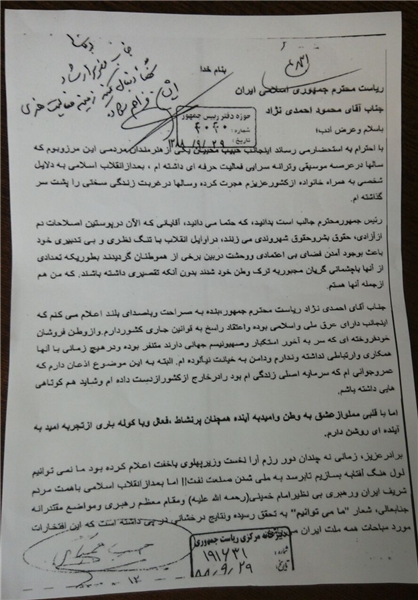 بنام خدا
حوزه دفتر رئیس جمهور
شماره: ۴۰۲۰
تاریخ:
ریاست محترم جمهوری اسلامی ایران
جناب آقای محمود احمدی نژاد
باسلام وعرض ادب؛
با احترام به استحضارمی رساند اینجانب حبیب محبیان یکی ازهنرمندان مردمی این مرزوبوم که
سالها درعرصه موسیقی وترانه سرایی فعالیت حرفه ای داشته ام ، بعدازانقلاب اسلامی به دلایل
شخصی به همراه خانواده ازکشورعزیزم هجرت کرده وسالها درغربت زندگی سختی را پشت سر
گذاشته ام.
رئیس جمهورمحترم جالب است بدانید، که حتما می دانید، آقایانی که الان درپوستین اصلاحات دم
ازآزادی، حقوق بشروحقوق شهروندی می زنند، دراوایل انقلاب با تنگ نظری و بی تدبیری خود
باعث بوجود آمدن فضای بی اعتمادی ووحشت دربین برخی از هموطنان گردیدند بطوریکه تعدادی
از آنها باچشمانی گریان مجبوربه ترک وطن خود شدند بدون آنکه تقصیری داشته باشند. که من هم
ازجمله آنها هستم.
جناب آقای احمدی نژاد ریاست محترم جمهور،بنده به صراحت وباصدای بلند اعلام می کنم که
اینجانب دارای عرق ملی واسلامی بوده واعتقاد راسخ به قوانین جاری کشوردارم وازوطن فروشان
خودفروخته ای که سر به آخور استکبار وصهیونیسم جهانی دارند متنفر بوده ودر هیچ زمانی با آنها
همکاری وارتباطی نداشته وندارم ودامن به خیانت نیالوده ام. البته به این موضوع اذعان دارم که
عمروجوانی ام که سرمایه اصلی زندگی ام بود رادرخارج ازکشورازدست داده ام وشاید هم کوتاهی
هایی داشته باشم.
اما با قلبی مملوازعشق به وطن وامیدبه آینده همچنان پرنشاط، فعال وبا کوله باری ازتجربه امید به
آینده ای روشن دارم.
برادرعزیز، زمانی نه چندان دور رزم آرا نخست وزیرپهلوی باخفت اعلام کرده بود ما نمی توانیم
لول هنگ آفتابه بسازیم تابرسد به ملی شدن صنعت نفت!! اما بعدازانقلاب اسلامی باهمت مردم
شریف ایران ورهبری بی نظیرامام خمینی(رحمه الله علیه) ومقام معظم رهبری ومواضع مقتدرانه
جنابعالی، شعار "ما می توانیم" به تحقق رسیده ونتایج درخشانی در پی داشته است که این افتخارات
مورد مباحات همه ملت ایران
دبیرخانه مرکزی ریاست جمهوری
شماره: ۱۹۱۶۳۱
تاریخ: ۸۸.۹.۲۹